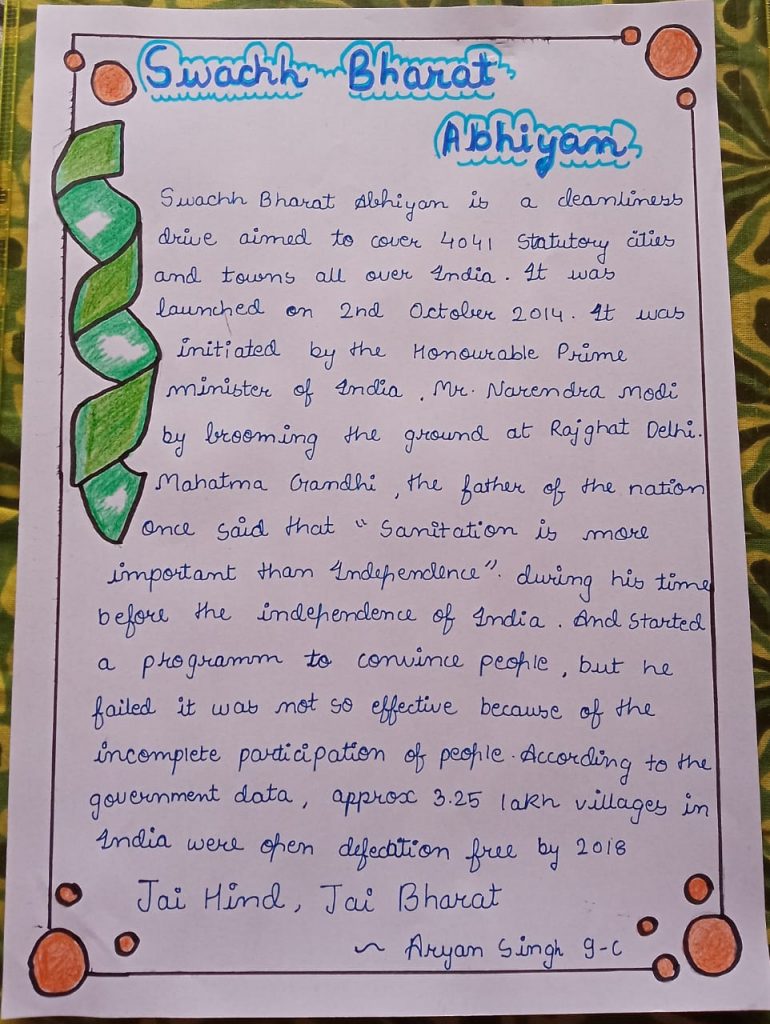 Swachh Bharat
Abhiyan
Swachh Bharat Abhiyan is a cleanliness
drive aimed to cover 4041 statutory cities
and towns all over India. It was
launched on 2nd October 2014. It was
initiated by the Honourable Prime
minister of India, Mr. Narendra modi
by brooming the ground at Rajghat Delhi.
Mahatma Gandhi, the father of the nation
once said that "Sanitation is more
important than Independence". during his time
before the independence of India. And started
a programm to convince people, but he
failed it was not so effective because of the
incomplete participation of people. According to the
government data, approx 3.25 lakh villages in
India were open defecation free by 2018
Jai Hind, Jai Bharat
~ Aryan Singh 9-C